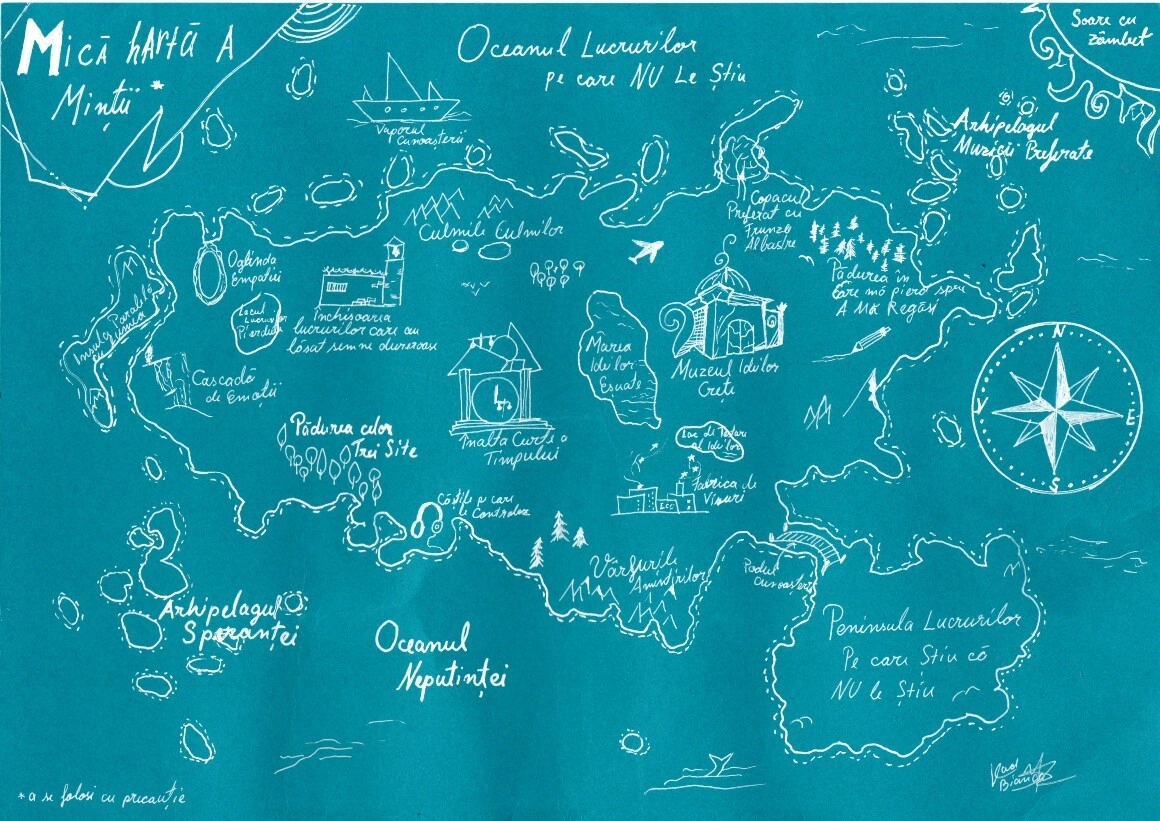 Mică hartă a
Minții *
Oceanul Lucrurilor
pe care NU Le Știu
Soare cu
zâmbet
Vaporul
Cunoașterii
Arhipelagul
Muzicii Preferate
Culmile Culmilor
Copacul
Preferat cu
Frunze
Albastre
Oglinda
Empatiei
Pădurea în
Care mă pierd spre
A Mă Regăsi
Insula Paralelă
cu Lumea
Lacul
Lucrurilor
Pierdute
Închisoarea
lucrurilor care au
lăsat semne dureroase
Marea
Ideilor
Eșuate
Muzeul Ideilor
Crețe
Cascadă
de Emoții
Pădurea celor
Trei Site
Înalta Curte a
Timpului
Lac de
al Ideilor
Fabrica de
Visuri
Căștile pe care
le Controlez
N
E
S
V
Vârfurile
Amintirilor
Podul
Cunoașterii
Arhipelagul
Speranței
Oceanul
Neputinței
Peninsula Lucrurilor
Pe care Știu că
NU le Știu
Vlad
Bianca
* a se folosi cu precauție